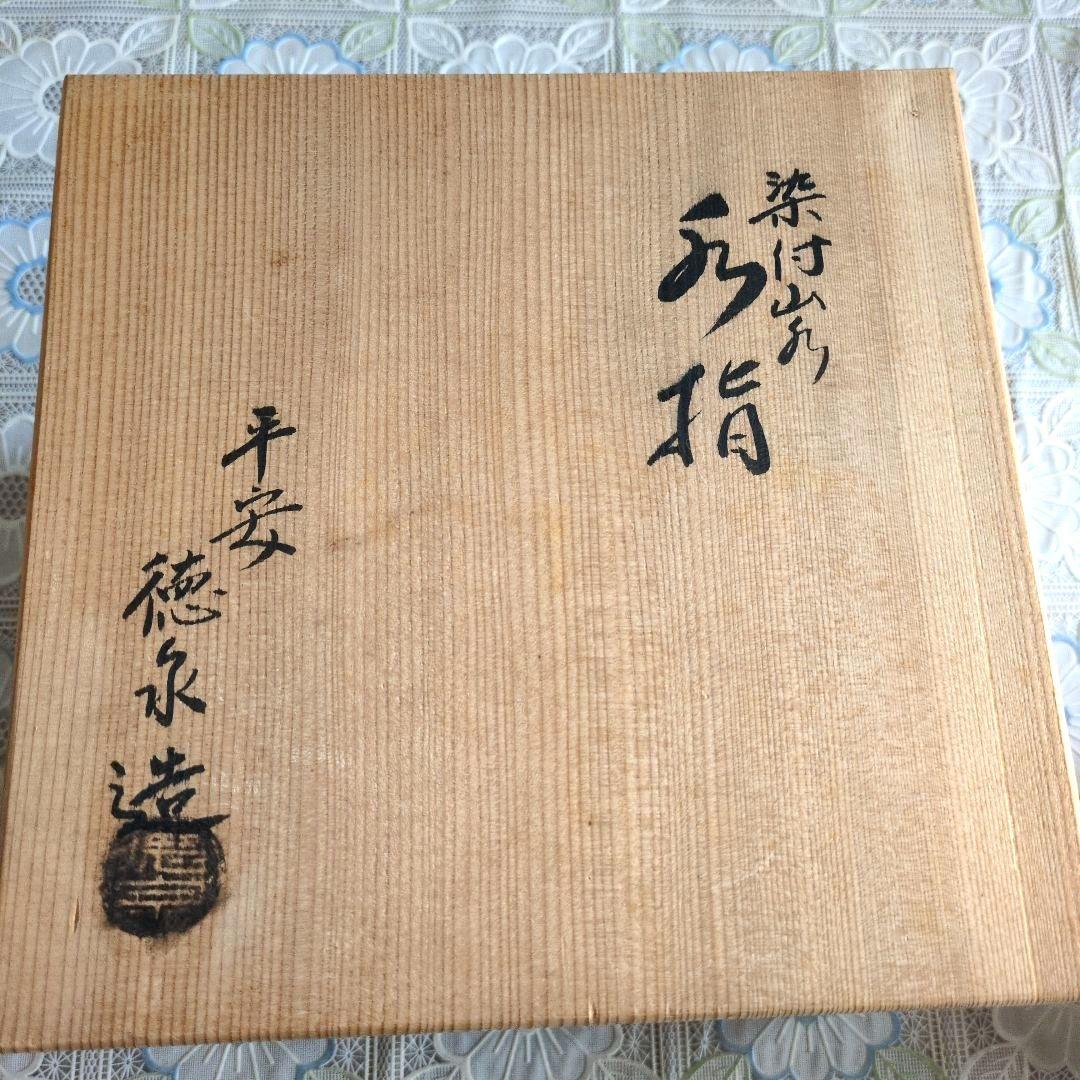 染付山水
水指
平安
徳泉造